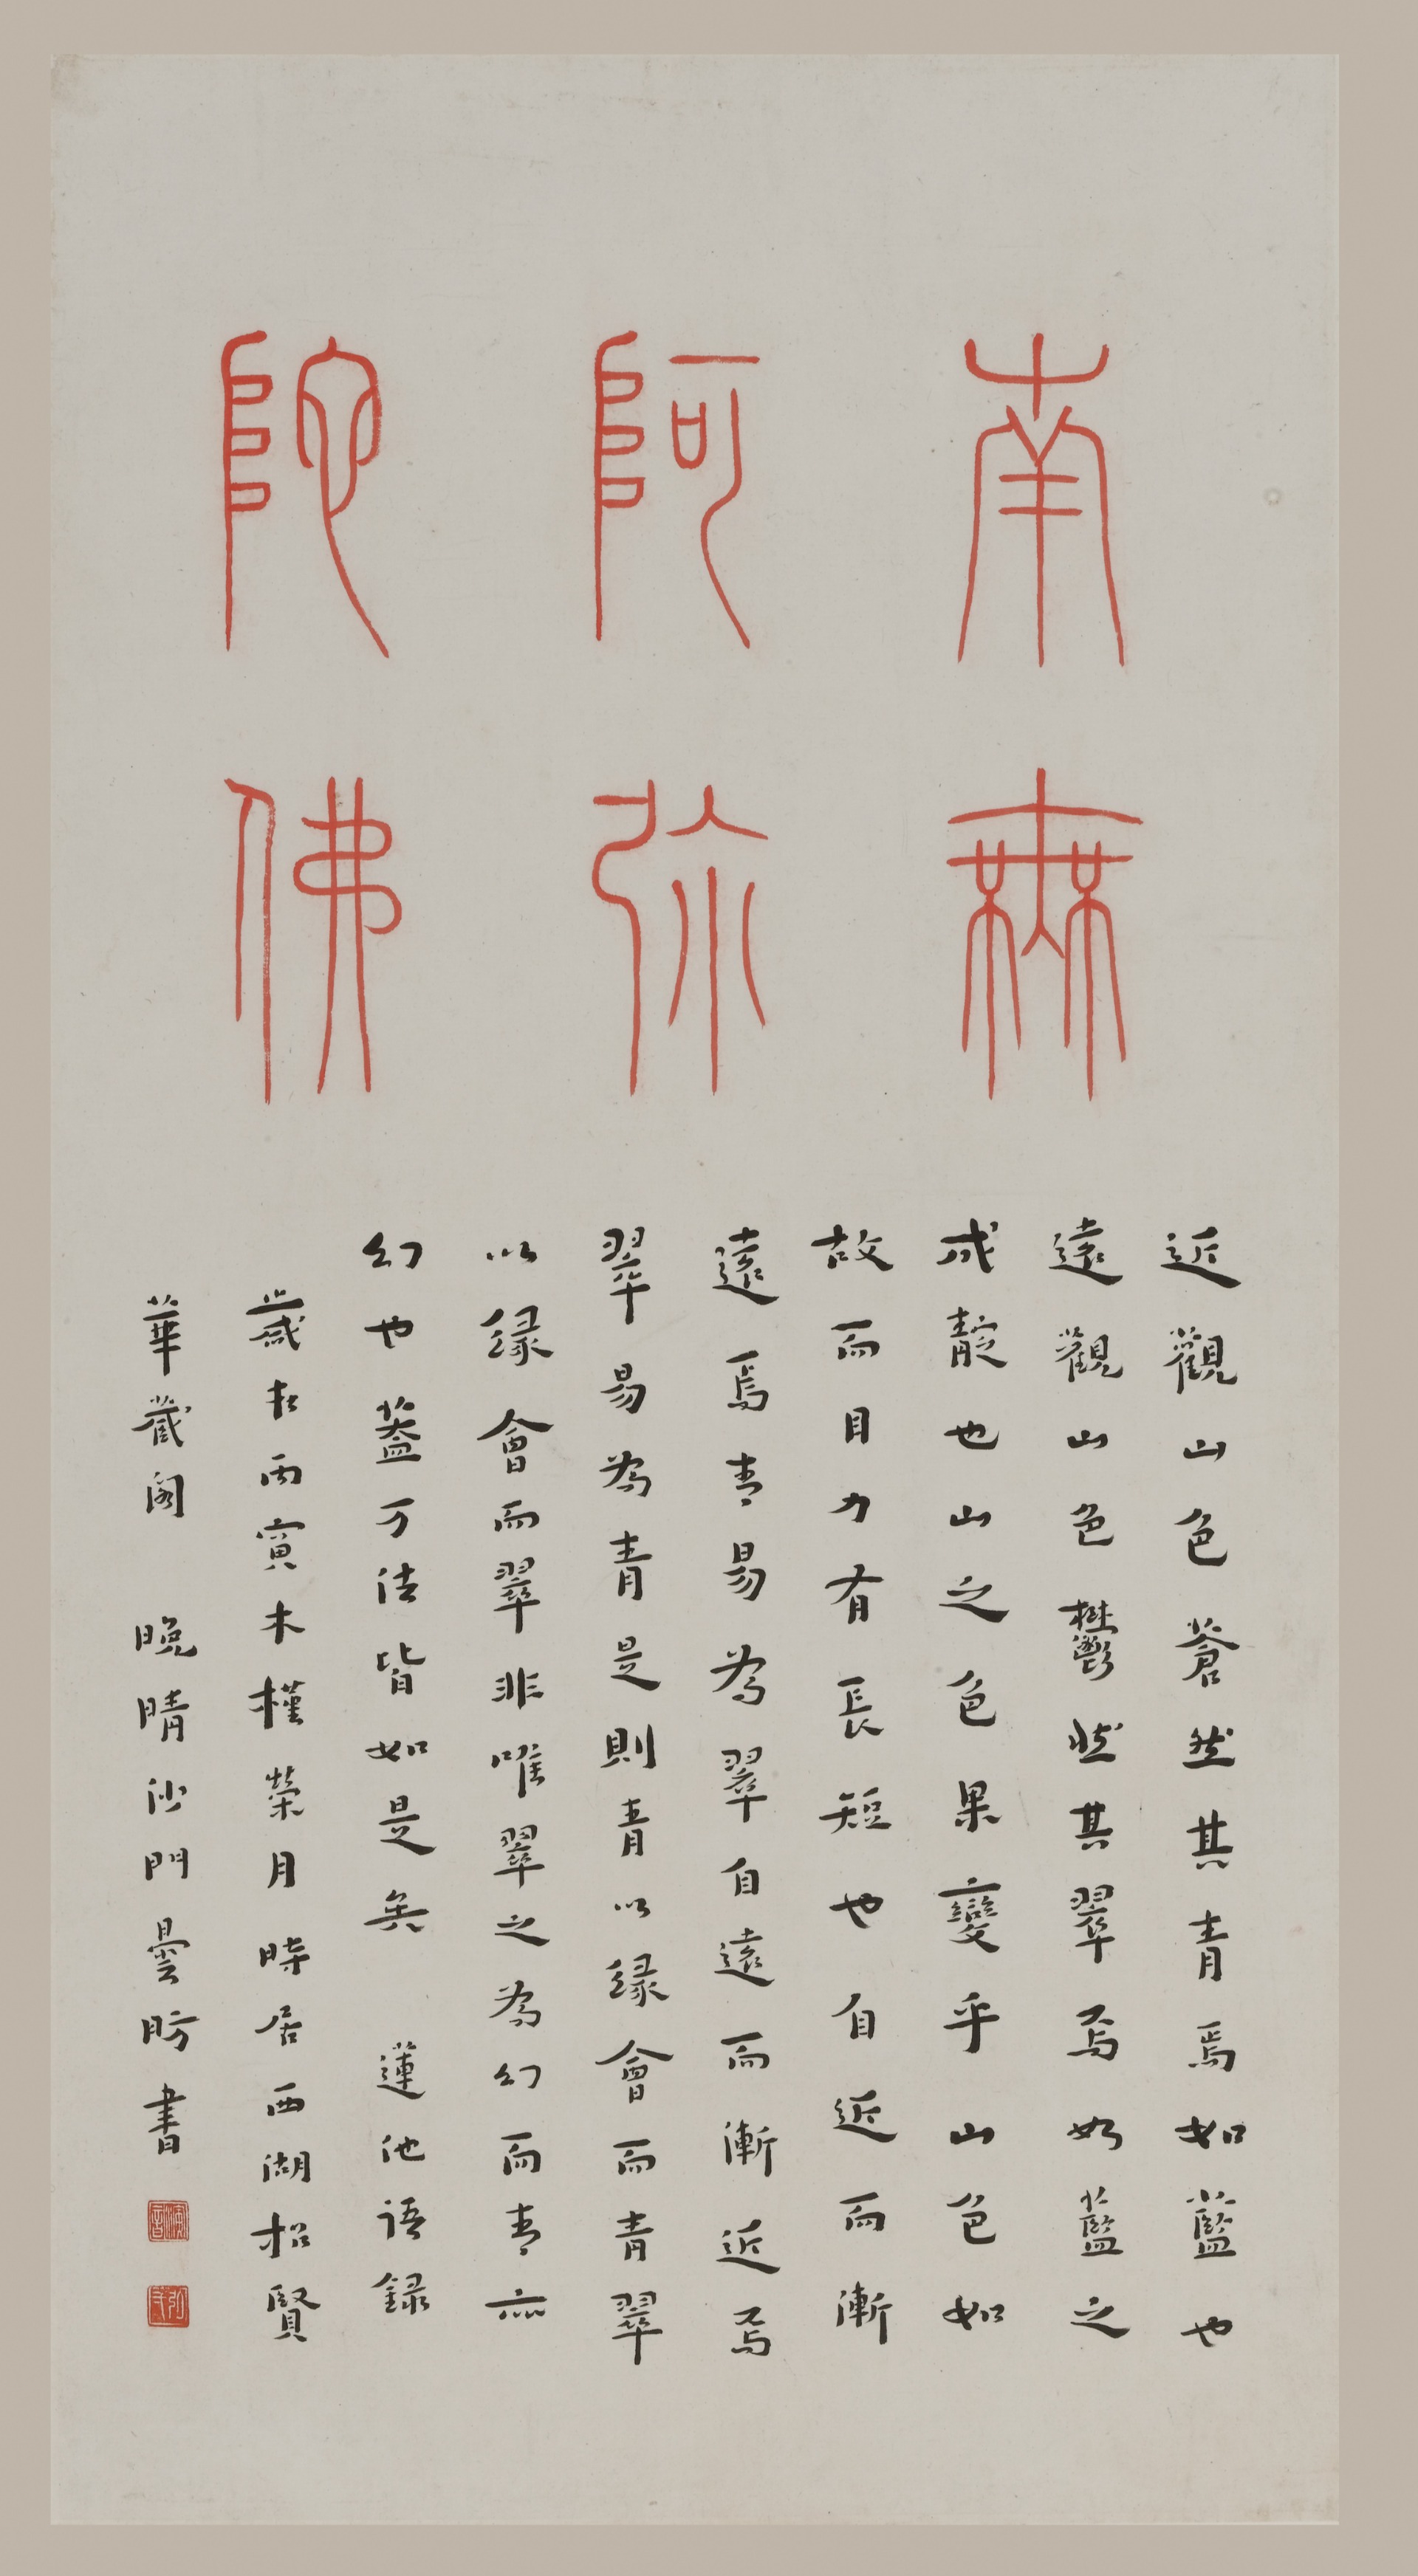 南無
阿彌
陀佛
近觀山色蒼然其青焉如藍也
遠觀山色鬱然其翠焉如藍之
成靛也山之色果變乎山色如
故而目力有長短也自近而漸
遠焉青易為翠自遠而漸近焉
翠易為青是則青以緣會而青翠
以緣會而翠非唯翠之為幻而青亦
幻也蓋万法皆如是矣 蓮池語錄
歲在丙寅木槿榮月 時居西湖招賢
華嚴閣 晚晴沙門曇昉書
演音
弘一